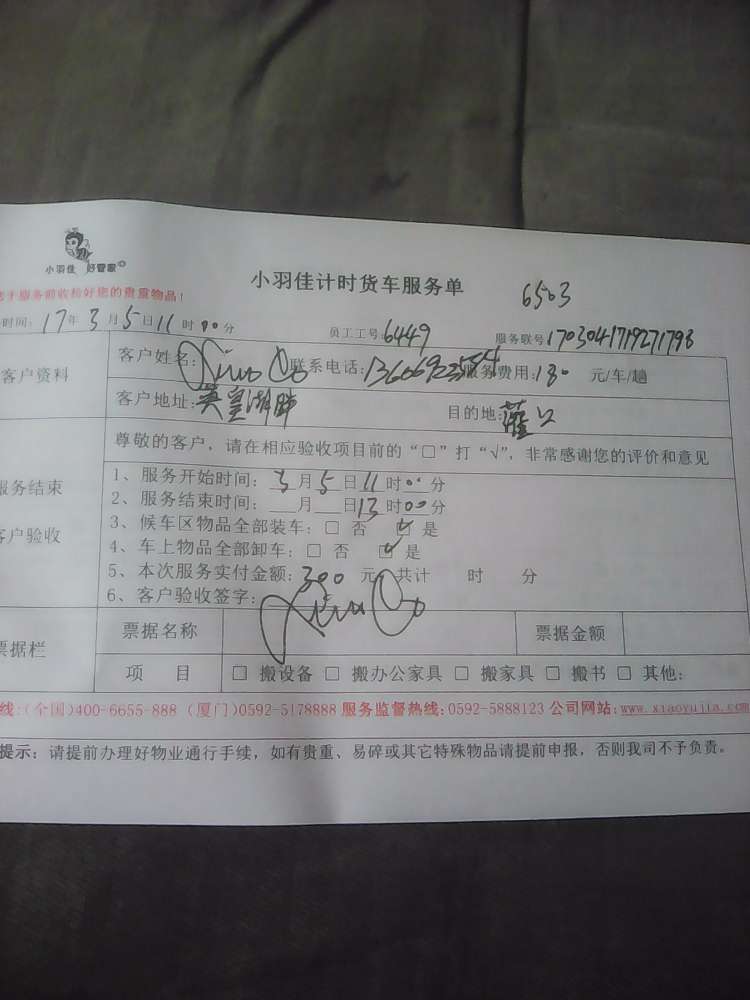 小羽佳 好管家
小羽佳计时货车服务单 6503
于服务前收检好您的贵重物品！
时间：17年3月5日11时00分 员工工号：6449 服务联号：1703041719271798
客户资料
客户姓名： 联系电话： 服务费用：180 元/车/趟
客户地址：英皇湖畔 目的地：灌口
尊敬的客户，请在相应验收项目前的“□”打“√”，非常感谢您的评价和意见
服务结束
客户验收
1、服务开始时间：3月5日11时00分
2、服务结束时间：__月__日13时00分
3、候车区物品全部装车：□ 否 ☑ 是
4、车上物品全部卸车：□ 否 ☑ 是
5、本次服务实付金额：300 元，共计 时 分
6、客户验收签字：
票据栏
票据名称 票据金额
项 目 □ 搬设备 □ 搬办公家具 □ 搬家具 □ 搬书 □ 其他：
线：(全国)400-6655-888 (厦门)0592-5178888 服务监督热线：0592-5888123 公司网站：www.xiaoyujia.com
提示：请提前办理好物业通行手续，如有贵重、易碎或其它特殊物品请提前申报，否则我司不予负责。